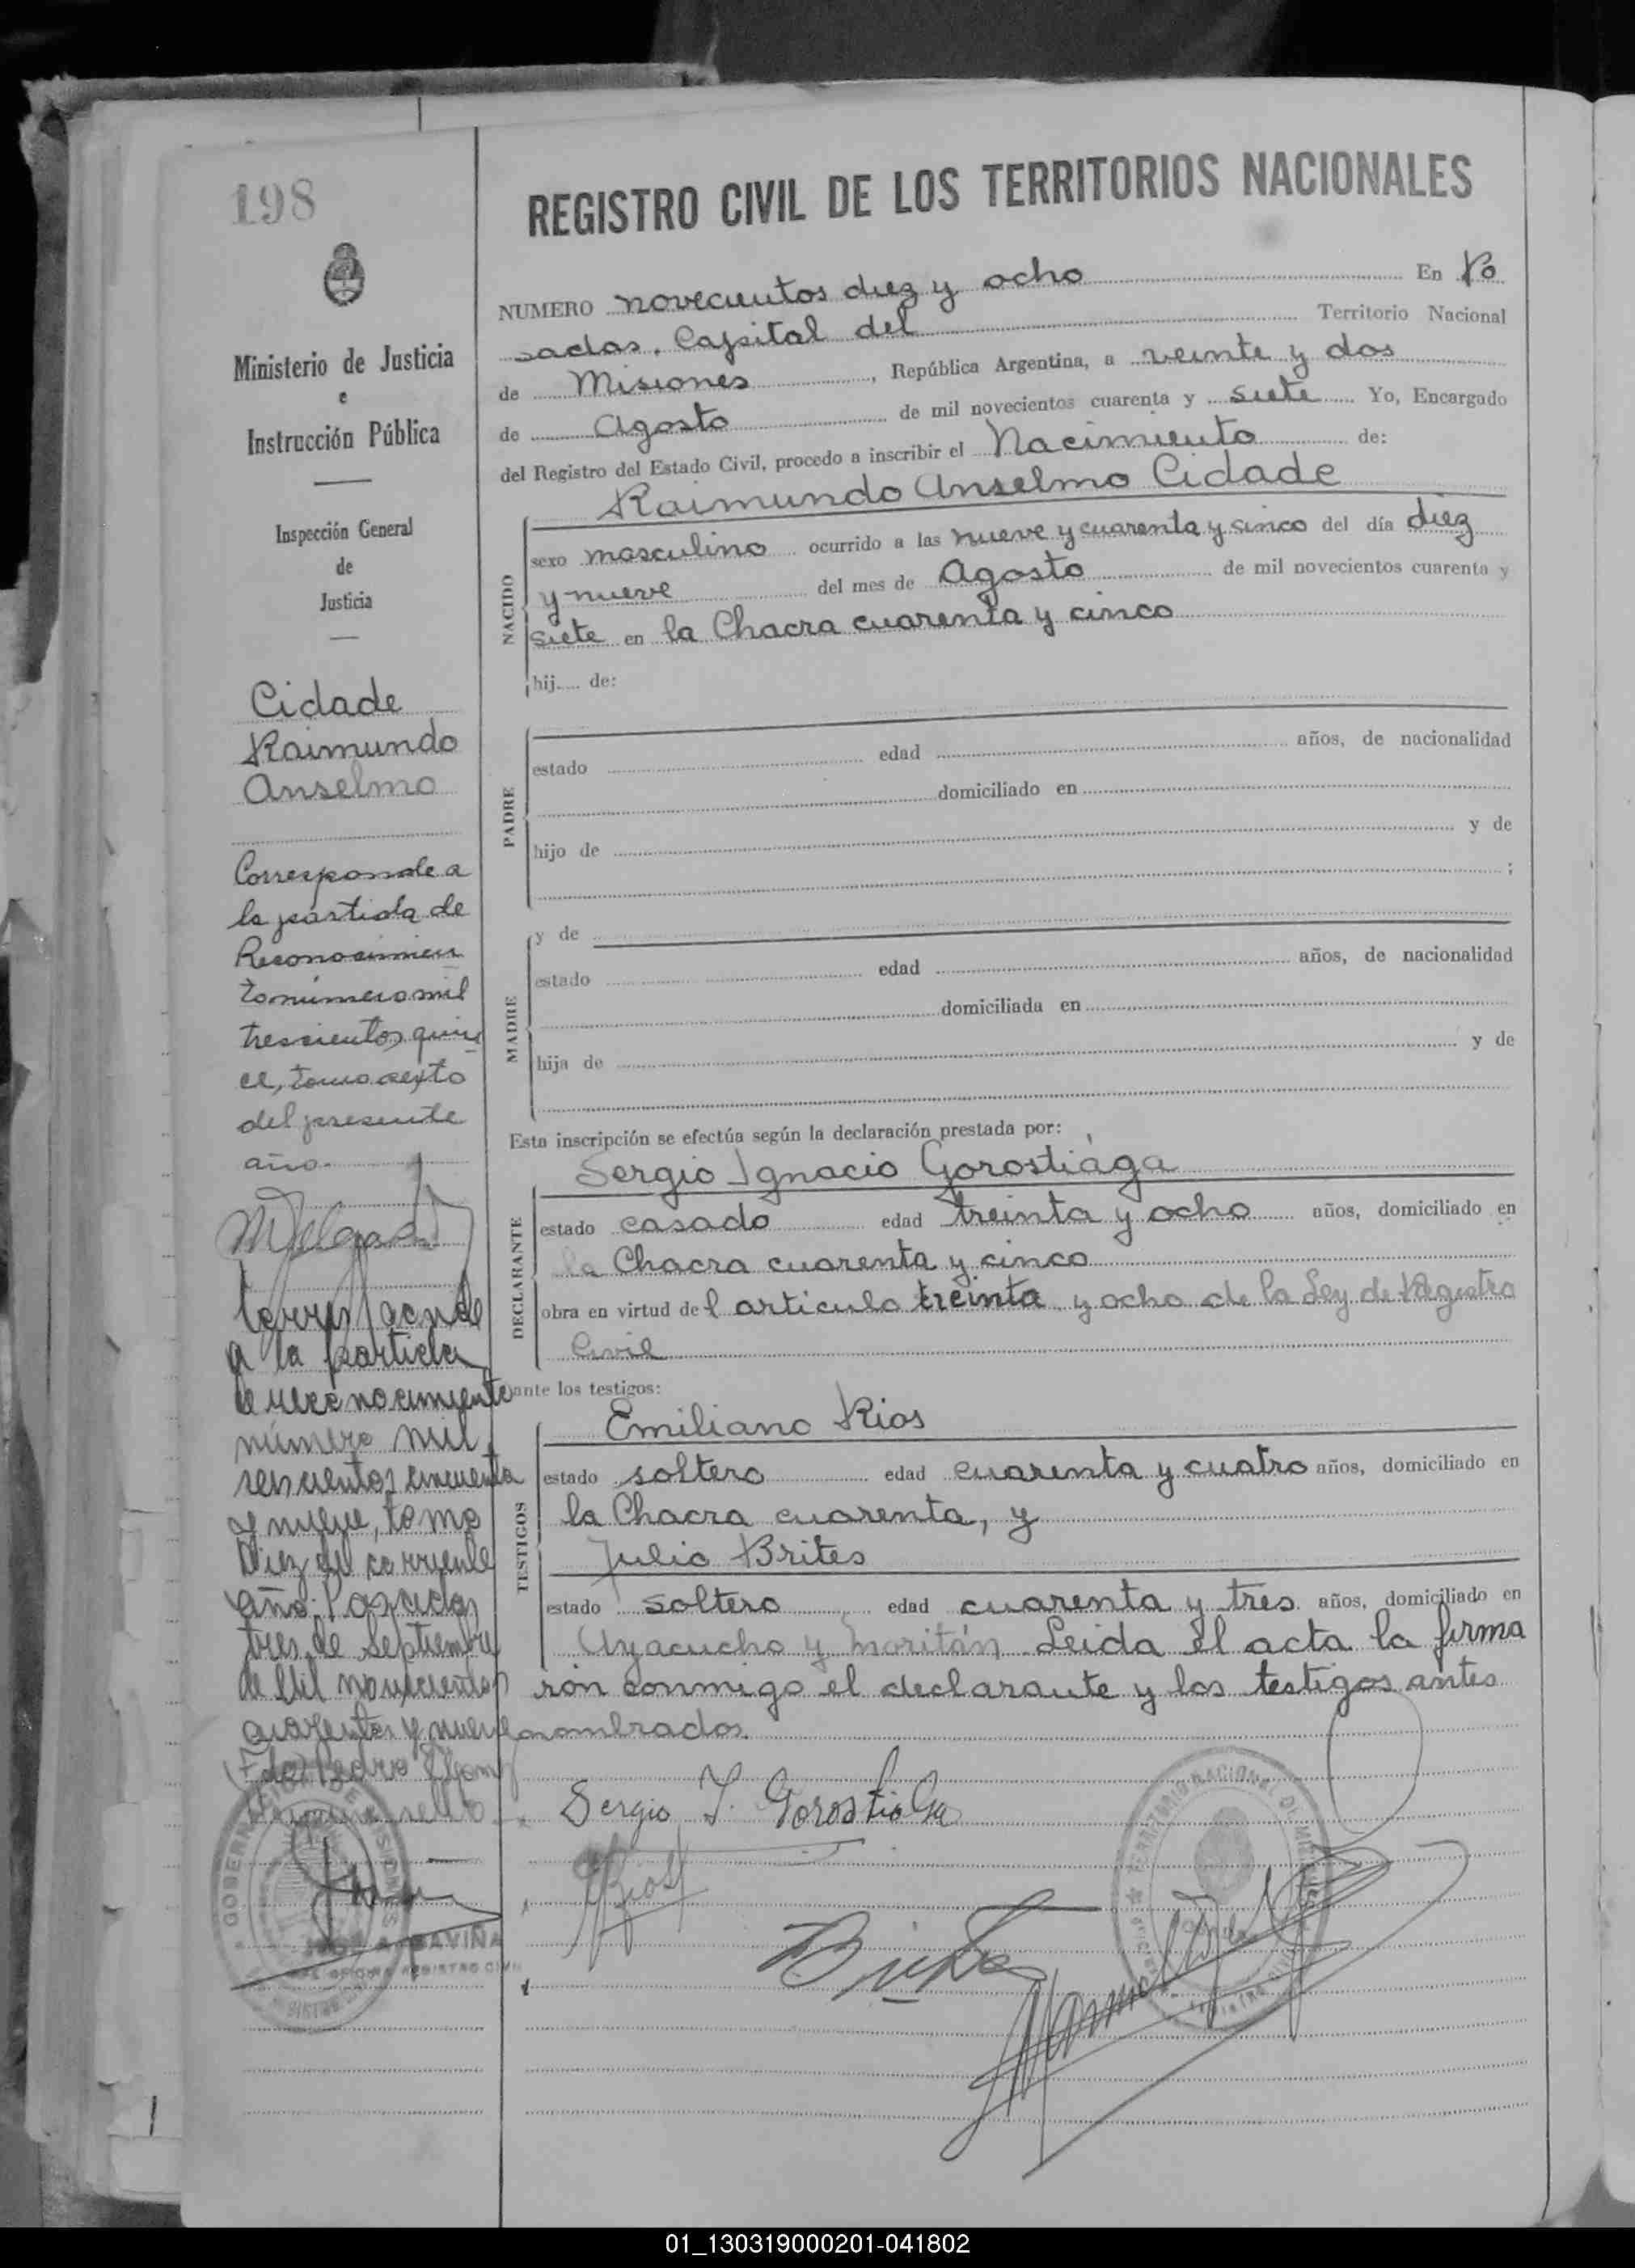 198
Ministerio de Justicia
e
Instrucción Pública
Inspección General
de
Justicia
Cidade
Raimundo
Anselmo
Corresponde a
la partida de
Reconocimien
to número mil
trescientos quin
ce, tomo sexto
del presente
año.
Corresponde
a la partida
de reconocimiento
número mil
seiscientos cincuenta
y nueve, tomo
Diez del corriente
año. Posadas
tres de Septiembre
de Mil novecientos
cuarenta y nueve
Fdo: Pedro
REGISTRO CIVIL DE LOS TERRITORIOS NACIONALES
NUMERO novecientos diez y ocho En Po
sadas, Capital del Territorio Nacional
de Misiones, República Argentina, a veinte y dos
de Agosto de mil novecientos cuarenta y siete Yo, Encargado
del Registro del Estado Civil, procedo a inscribir el Nacimiento de:
Raimundo Anselmo Cidade
NACIDO
sexo masculino ocurrido a las nueve y cuarenta y sinco del día diez
y nueve del mes de Agosto de mil novecientos cuarenta y
siete en la Chacra cuarenta y cinco
hij.... de:
PADRE
estado edad años, de nacionalidad
domiciliado en
hijo de y de
;
MADRE
y de
estado edad años, de nacionalidad
domiciliada en
hija de y de
Esta inscripción se efectúa según la declaración prestada por:
Sergio Ignacio Gorostiaga
DECLARANTE
estado casado edad treinta y ocho años, domiciliado en
la Chacra cuarenta y cinco
obra en virtud del articulo treinta y ocho de la Ley de Registro
Civil
ante los testigos:
Emiliano Rios
TESTIGOS
estado soltero edad cuarenta y cuatro años, domiciliado en
la Chacra cuarenta, y
Julio Brites
estado soltero edad cuarenta y tres años, domiciliado en
Ayacucho y Moritán. Leida el acta la firma
ron conmigo el declarante y los testigos antes
nombrados.
Sergio I. Gorostiaga
Rios
Brites
TERRITORIO NACIONAL DE MISIONES
01_130319000201-041802